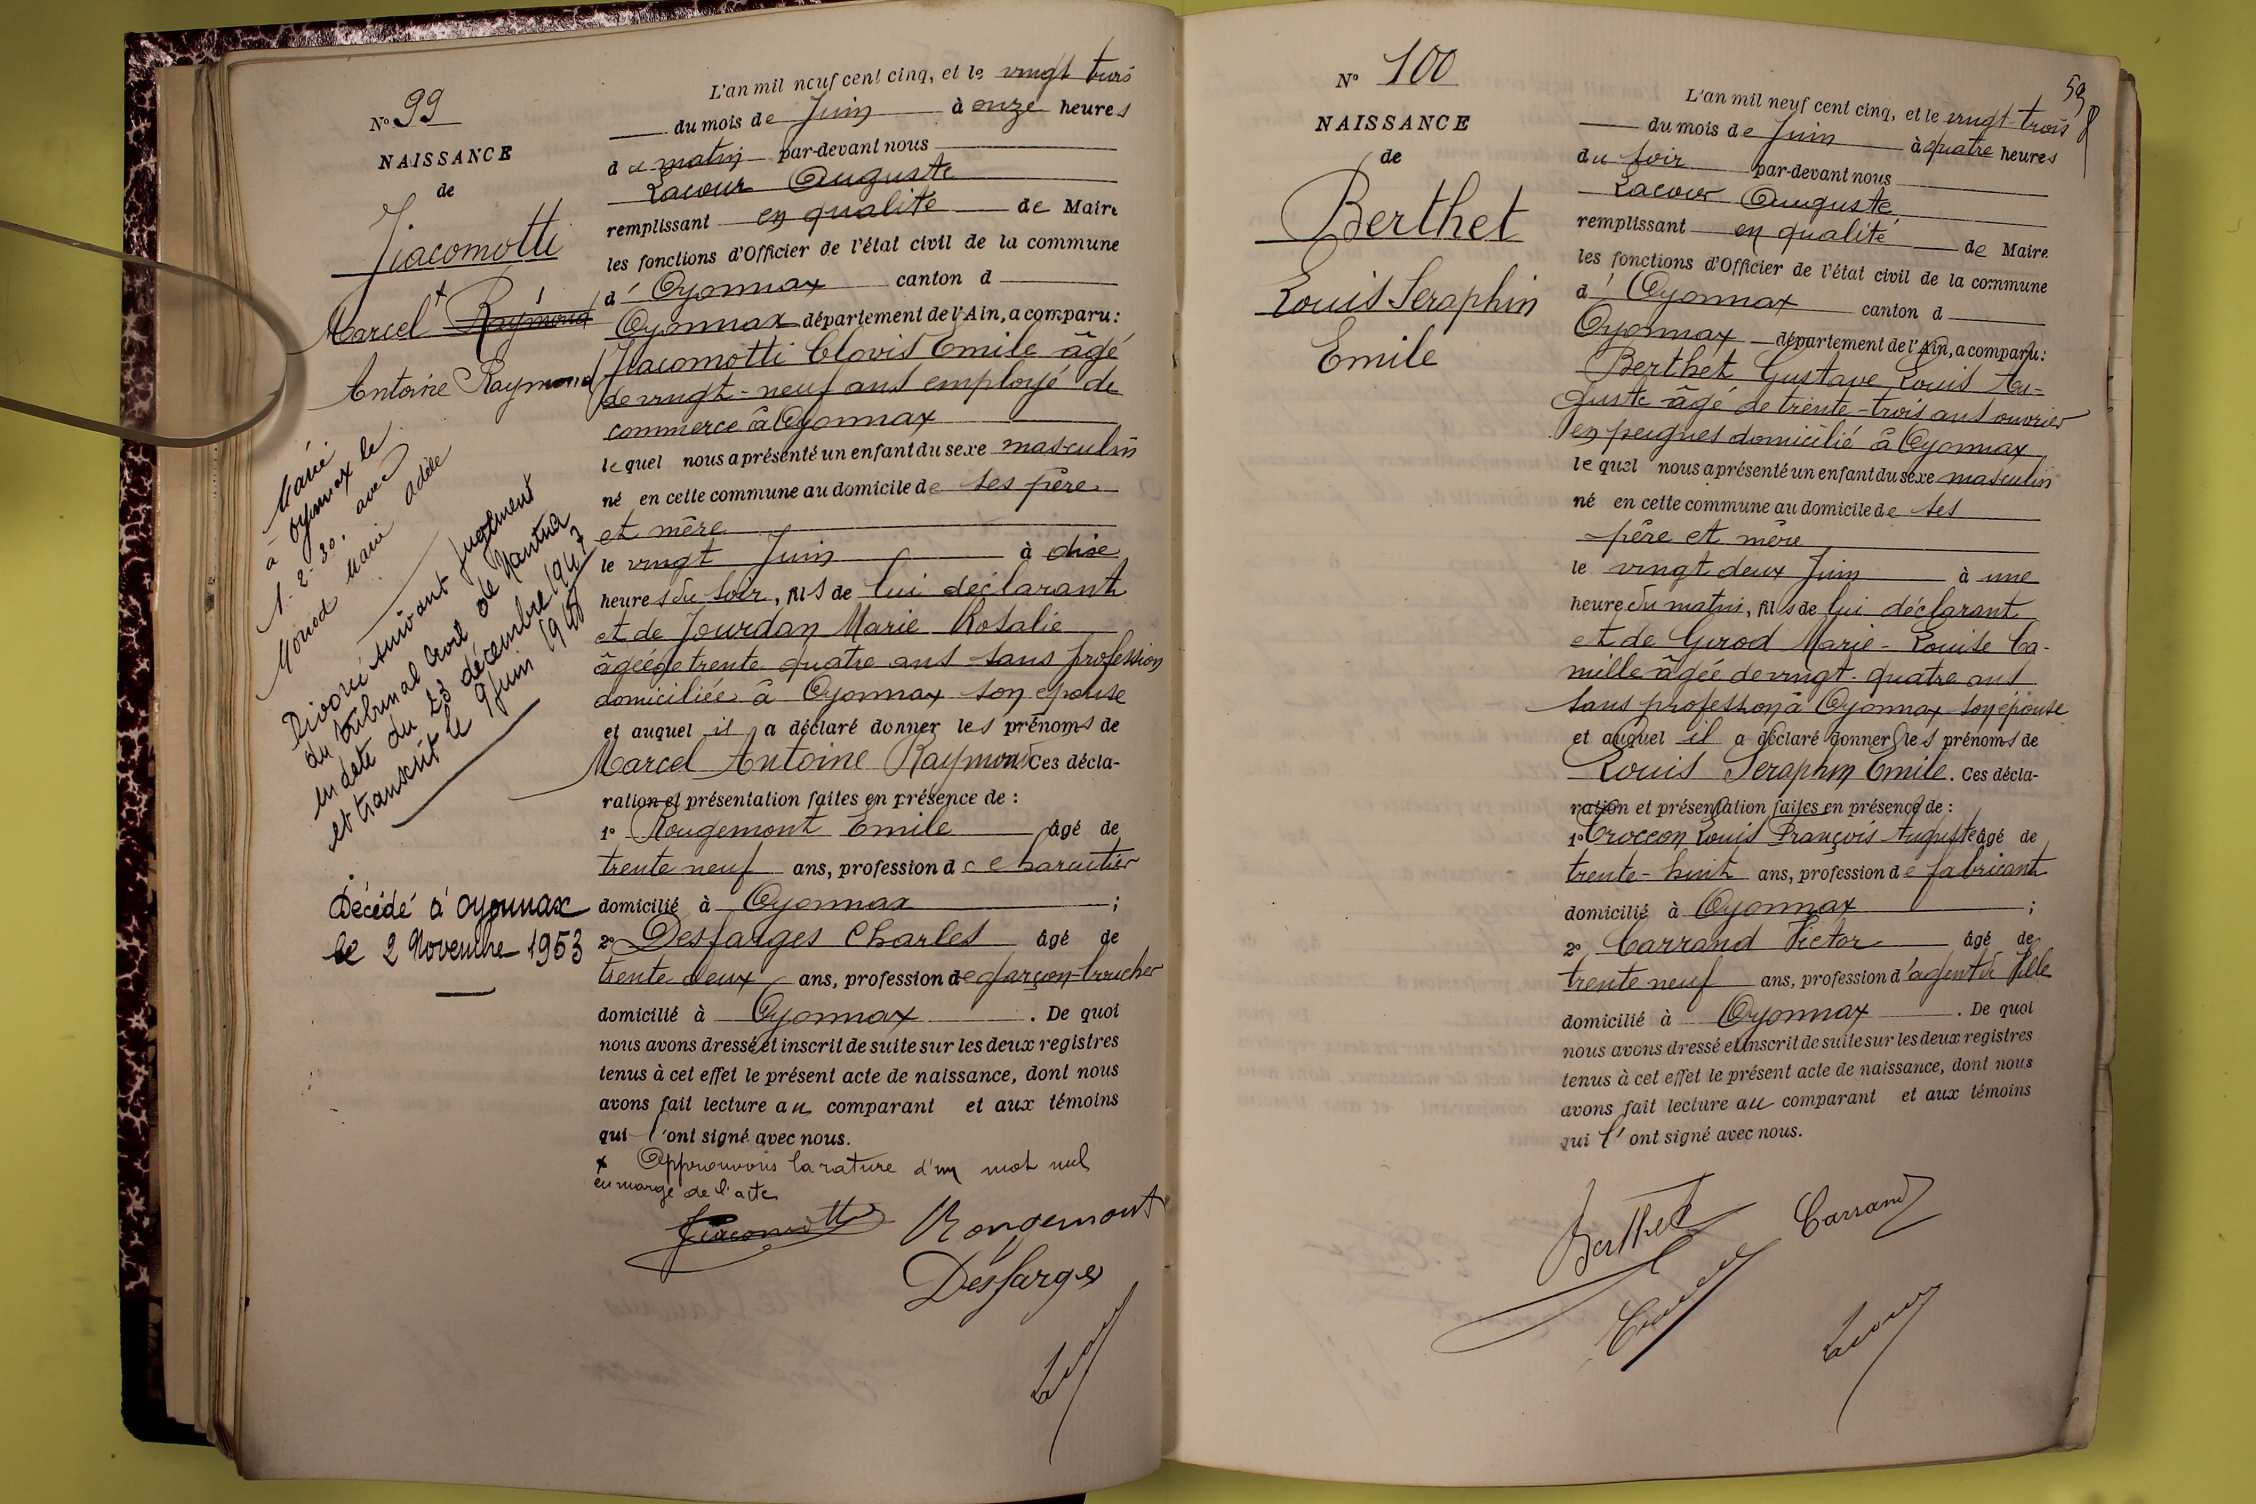 N° 99
NAISSANCE
de
Jiacomotti
Marcel + Raymond
Antoine Raymond
Marié
à Oyonnax le
1-2-30. avec
Monod Marie Adèle
Divorcé suivant jugement
du tribunal civil de Nantua
en date du 23 décembre 1947
et transcrit le 9 Juin 1948
Décédé à Oyonnax
le 2 Novembre 1953
L'an mil neuf cent cinq, et le vingt trois
du mois de Juin à onze heures
du matin par-devant nous
Lacour Auguste
remplissant en qualité de Maire
les fonctions d'Officier de l'état civil de la commune
d' Oyonnax canton d
Oyonnax département de l'Ain, a comparu:
Jiacomotti Clovis Emile âgé
de vingt-neuf ans employé de
commerce à Oyonnax
lequel nous a présenté un enfant du sexe masculin
né en cette commune au domicile de ses père
et mère
le vingt Juin à dix
heures du soir, fils de lui déclarant
et de Jourdan Marie Rosalie
âgée de trente quatre ans sans profession
domiciliée à Oyonnax son épouse
et auquel il a déclaré donner les prénoms de
Marcel Antoine Raymond Ces décla-
ration et présentation faites en présence de :
1° Rougemont Emile âgé de
trente neuf ans, profession de charcutier
domicilié à Oyonnax ;
2° Desfarges Charles âgé de
trente deux ans, profession de garçon-boucher
domicilié à Oyonnax . De quoi
nous avons dressé et inscrit de suite sur les deux registres
tenus à cet effet le présent acte de naissance, dont nous
avons fait lecture au comparant et aux témoins
qui l'ont signé avec nous.
+ Approuvons la rature d'un mot nul
en marge de l'acte
Jiacomotti Rougemont
Desfarges
N° 100
NAISSANCE
de
Berthet
Louis Seraphin
Emile
59
L'an mil neuf cent cinq, et le vingt-trois
du mois de Juin à quatre heures
du soir par-devant nous
Lacour Auguste
remplissant en qualité de Maire
les fonctions d'Officier de l'état civil de la commune
d' Oyonnax canton d
Oyonnax département de l'Ain, a comparu:
Berthet Gustave Louis Au-
guste âgé de trente-trois ans ouvrier
en peignes domicilié à Oyonnax
lequel nous a présenté un enfant du sexe masculin
né en cette commune au domicile de ses
père et mère
le vingt deux Juin à une
heure du matin, fils de lui déclarant
et de Girod Marie-Louise Ca-
mille âgée de vingt-quatre ans
sans profession à Oyonnax son épouse
et auquel il a déclaré donner les prénoms de
Louis Seraphin Emile. Ces décla-
ration et présentation faites en présence de :
1° Croccon Louis François Auguste âgé de
trente-huit ans, profession de fabricant
domicilié à Oyonnax ;
2° Carrand Victor âgé de
trente neuf ans, profession d'agent de Ville
domicilié à Oyonnax . De quoi
nous avons dressé et inscrit de suite sur les deux registres
tenus à cet effet le présent acte de naissance, dont nous
avons fait lecture au comparant et aux témoins
qui l'ont signé avec nous.
Berthet Carrand
Lacour